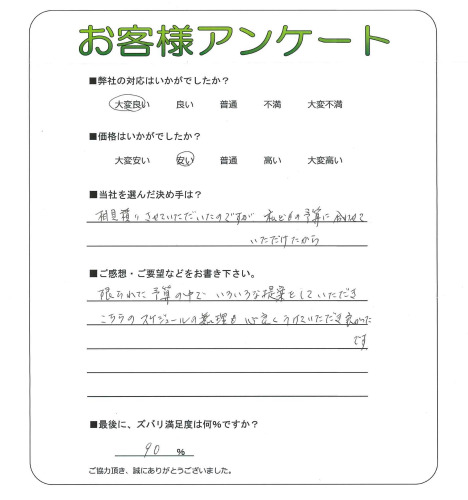 お客様アンケート
■弊社の対応はいかがでしたか？
大変良い 良い 普通 不満 大変不満
■価格はいかがでしたか？
大変安い 安い 普通 高い 大変高い
■当社を選んだ決め手は？
相見積りさせていただいたのですが 私どもの予算に合わせて
いただけたから
■ご感想・ご要望などをお書き下さい。
限られた予算の中で いろいろな提案をしていただき
こちらのスケジュールの無理も心良くうけていただき良かった
です
■最後に、ズバリ満足度は何%ですか？
90 %
ご協力頂き、誠にありがとうございました。